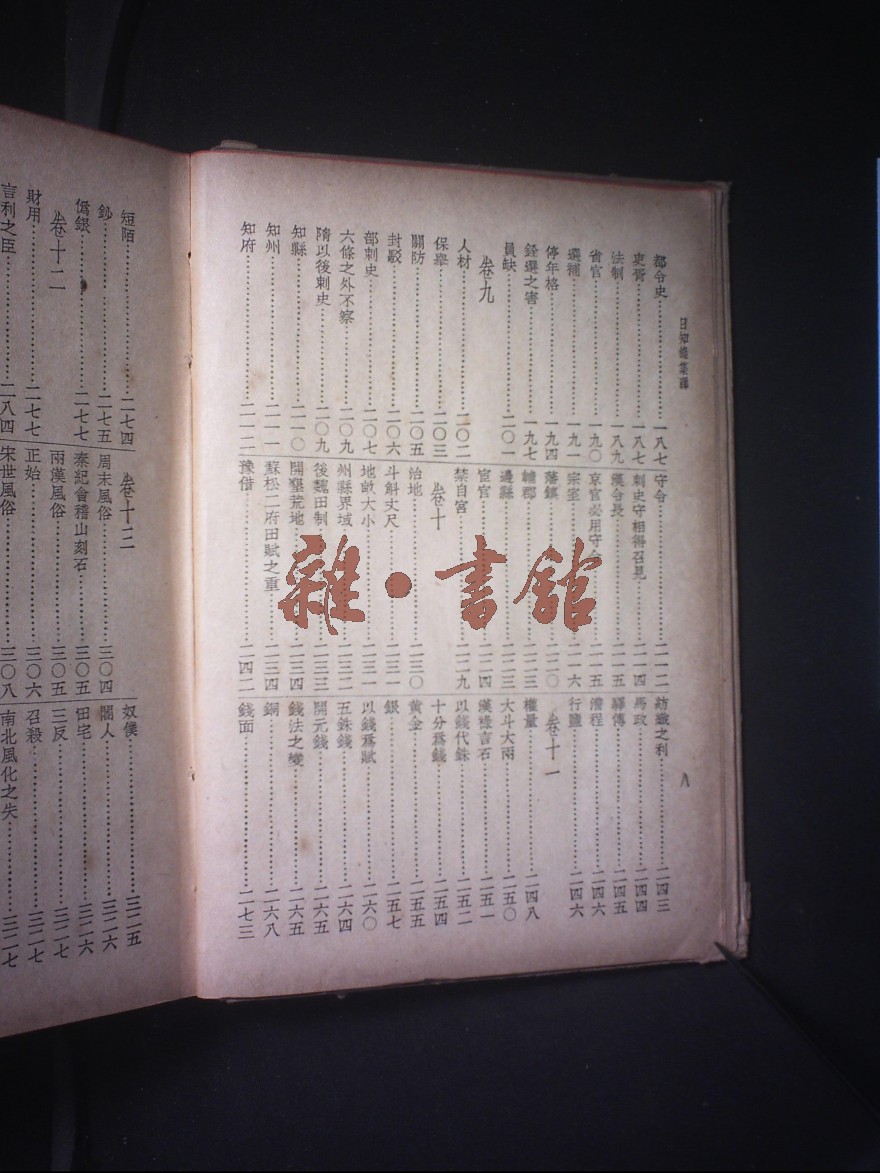 日知錄集釋
八
都令史 一八七
吏胥 一八七
法制 一八九
省官 一九〇
選補 一九一
停年格 一九四
銓選之害 一九七
員缺 二〇一
卷九
人材 二〇二
保舉 二〇三
關防 二〇五
封駁 二〇六
部刺史 二〇七
六條之外不察 二〇九
隋以後刺史 二〇九
知縣 二一〇
知州 二一一
知府 二一二
守令 二一二
刺史守相得召見 二一四
漢令長 二一五
京官必用守令 二一五
宗室 二一六
藩鎮 二二〇
輔郡 二二三
邊縣 二二三
宦官 二二四
禁自宮 二二九
卷十
治地 二三〇
斗斛丈尺 二三一
地畝大小 二三一
州縣界域 二三二
後魏田制 二三三
開墾荒地 二三四
蘇松二府田賦之重 二三四
豫借 二四二
紡織之利 二四三
馬政 二四四
驛傳 二四五
漕程 二四六
行鹽 二四六
卷十一
權量 二四八
大斗大兩 二五〇
漢祿言石 二五一
以錢代銖 二五二
十分為錢 二五四
黃金 二五五
銀 二五七
以錢為賦 二六〇
五銖錢 二六四
開元錢 二六五
錢法之變 二六五
銅 二六八
錢面 二七三
短陌 二七四
鈔 二七五
偽銀 二七七
卷十二
財用 二七七
言利之臣 二八四
卷十三
周末風俗 三〇四
秦紀會稽山刻石 三〇五
兩漢風俗 三〇五
正始 三〇六
宋世風俗 三〇八
奴僕 三二五
閽人 三二六
田宅 三二六
三反 三二七
召殺 三二七
南北風化之失 三二七
雜·書館